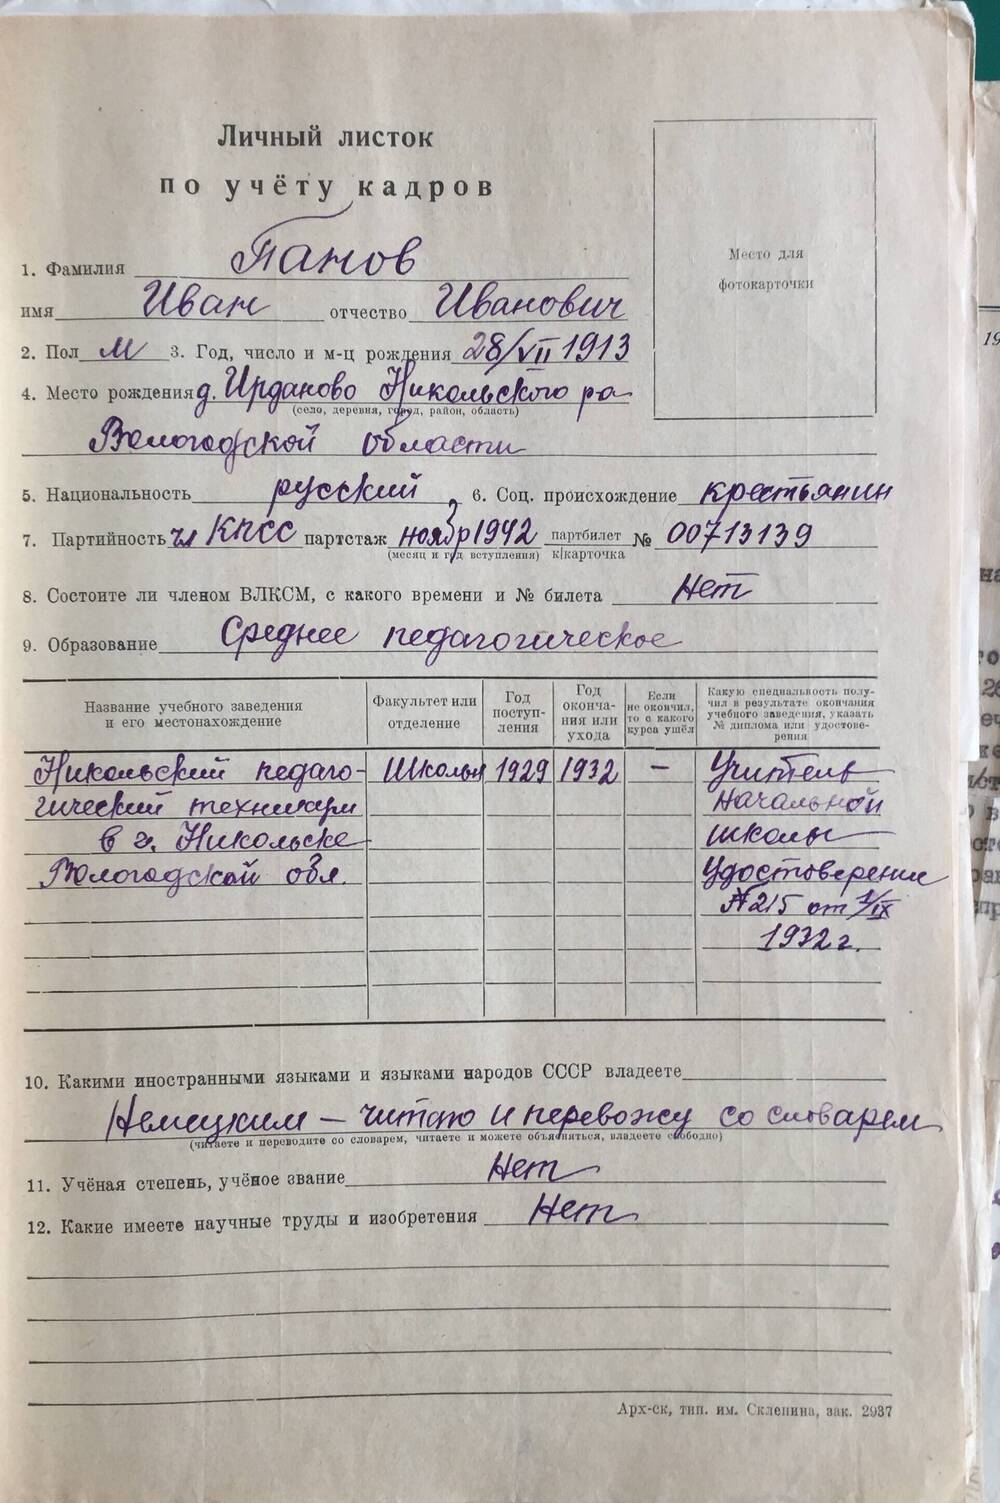 Личный листок
по учёту кадров
Место для
фотокарточки
1. Фамилия Панов
имя Иван отчество Иванович
2. Пол М 3. Год, число и м-ц рождения 28/VII 1913
4. Место рождения д. Ирданово Никольского ра
(село, деревня, город, район, область)
Вологодской области
5. Национальность русский 6. Соц. происхождение крестьянин
7. Партийность чл КПСС партстаж ноябр 1942 партбилет № 00713139
(месяц и год вступления) к/карточка
8. Состоите ли членом ВЛКСМ, с какого времени и № билета Нет
9. Образование Среднее педагогическое
Название учебного заведения
и его местонахождение
Факультет или
отделение
Год
поступ-
ления
Год
оконча-
ния или
ухода
Если
не окончил,
то с какого
курса ушёл
Какую специальность полу-
чил в результате окончания
учебного заведения, указать
№ диплома или удостове-
рения
Никольский педаго- Школьн 1929 1932 — Учитель
гический техникум начальной
в г. Никольске школы
Вологодской обл. Удостоверение
№215 от 1/IX
1932 г.
10. Какими иностранными языками и языками народов СССР владеете
Немецким — читаю и перевожу со словарем
(читаете и переводите со словарем, читаете и можете объясняться, владеете свободно)
11. Учёная степень, учёное звание Нет
12. Какие имеете научные труды и изобретения Нет
Арх-ск, тип. им. Склепина, зак. 2937